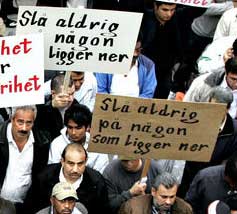 Slå aldrig
någon
ligger ner
rihet
r
rihet
Slå aldrig
på någon
som ligger ner